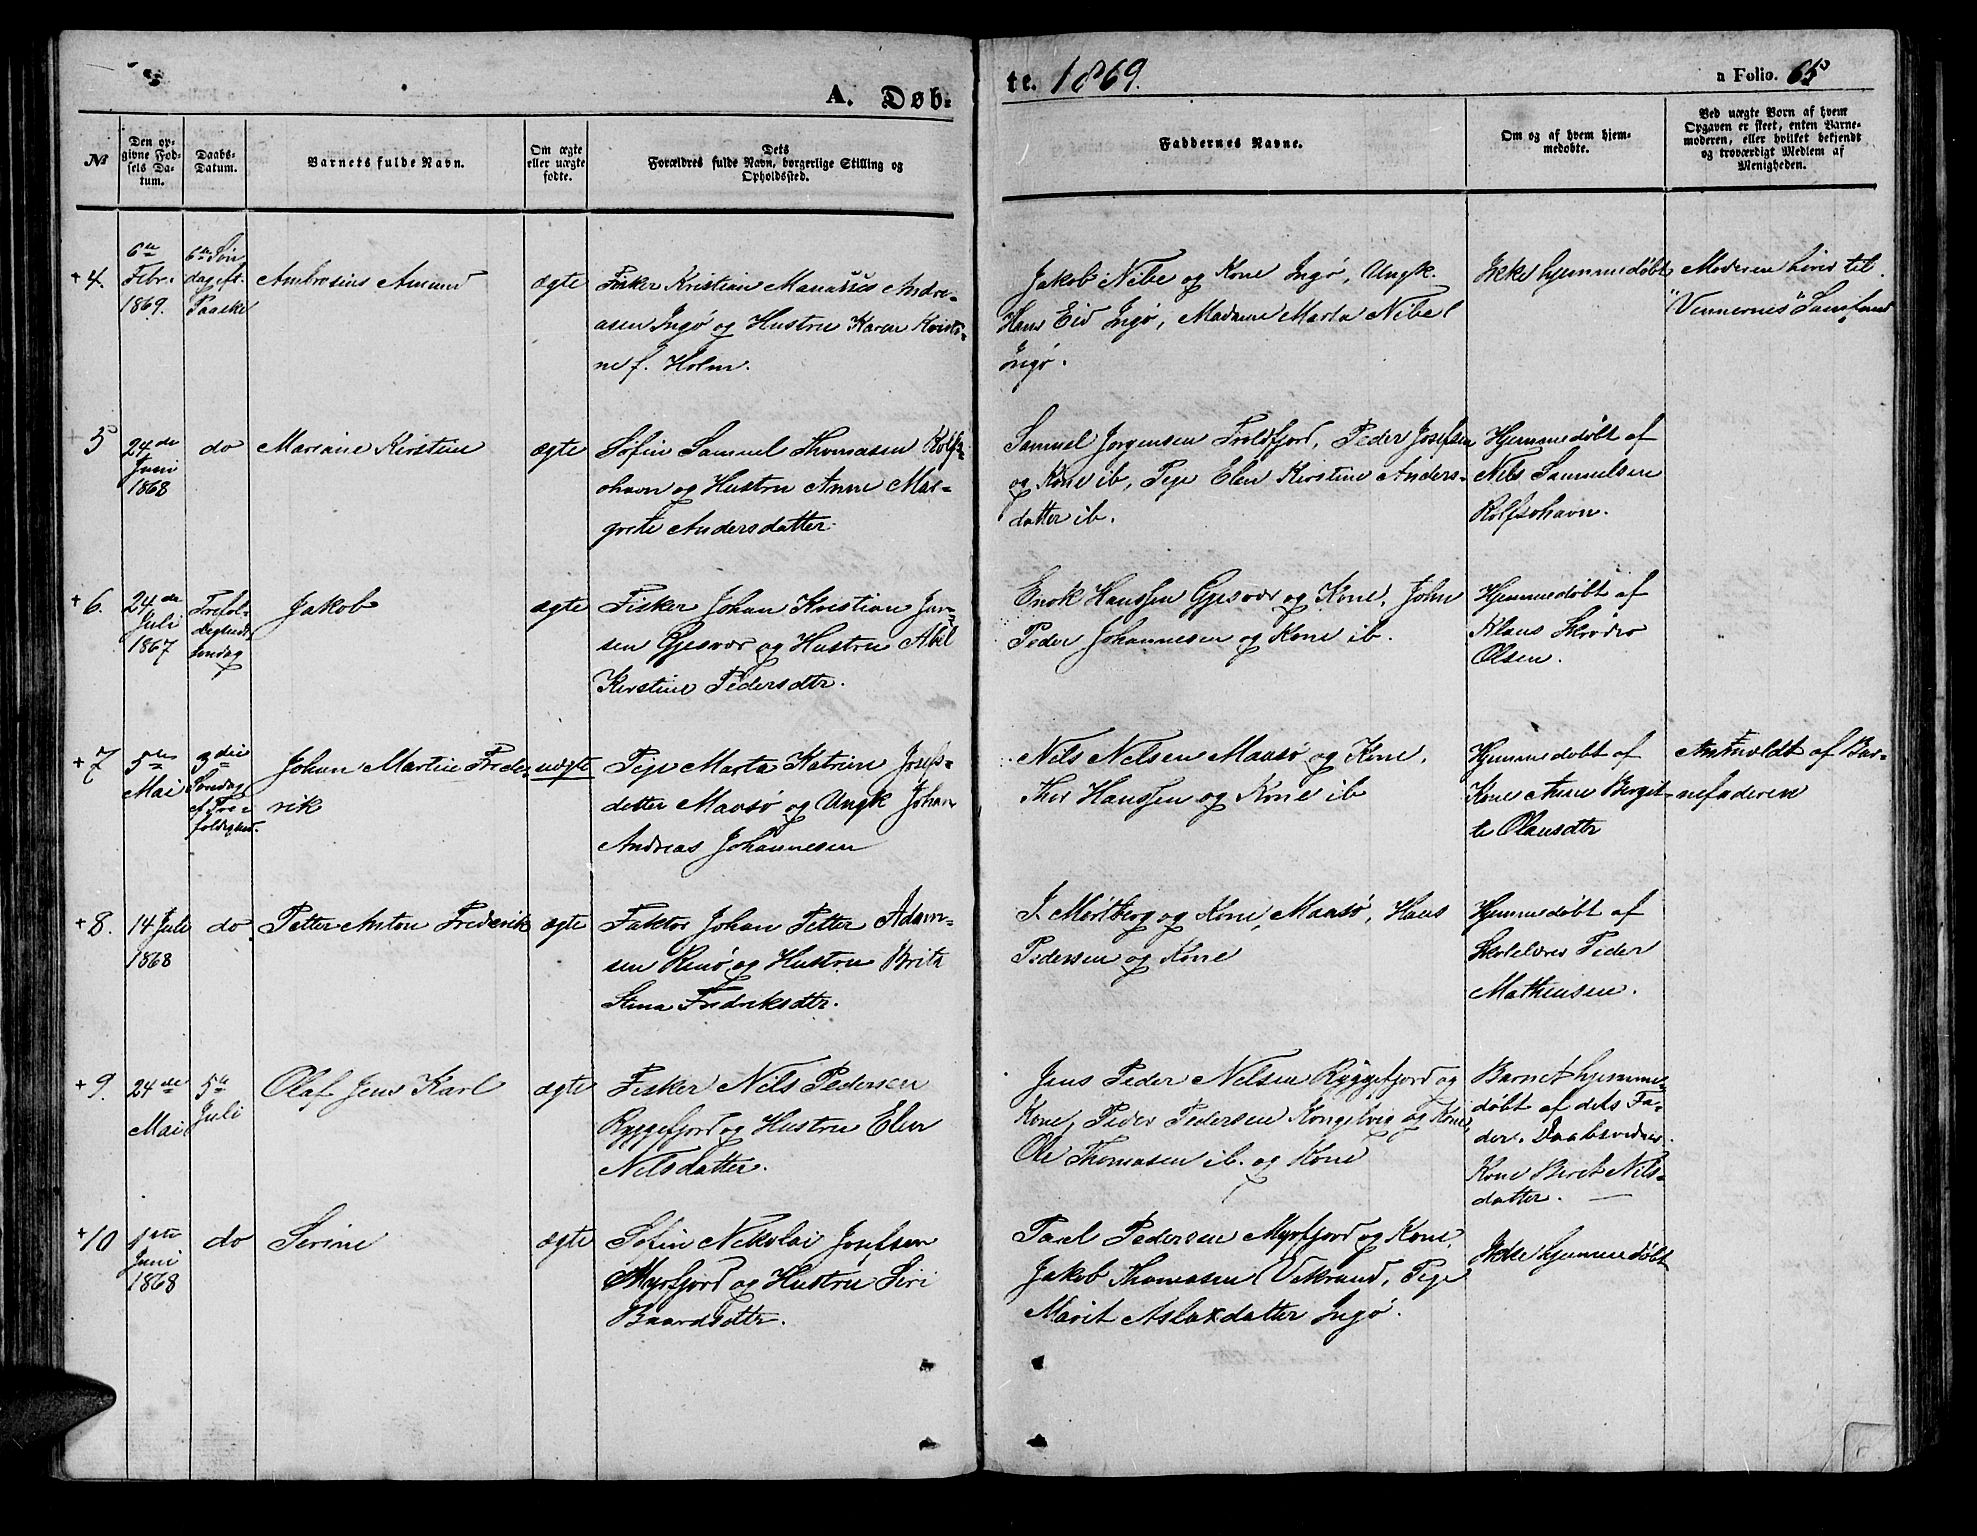 A. Døb-
te. 1869.
a Folio. 65
№
Den op-
givne Fød-
sels Da-
tum.
Daabs-
Datum.
Barnets fulde Navn.
Om ægte
eller uægte
fødte.
Dets
Forældres fulde Navn, borgerlige Stilling og
Opholdssted.
Faddernes Navne.
Om og af hvem hjem-
medøbte.
Ved uægte Børn af hvem
Opgaven er skeet, enten Barne-
moderen, eller hvilket bekjendt
og troværdigt Medlem af
Menigheden.
+4.
6te
Febr.
1869.
6te Søn
dag eft.
Paaske
Ambrosius Amund
ægte
Fisker Kristian Manasses Andre-
asen Ingø og Hustru Karen Kristi-
ne f. Holm.
Jakob Nibe og Kone Ingø, Ungk.
Hans Eid Ingø, Madame Marta Nibe
Ingø.
Ikke hjemmedøbt
Moderen hører til
"Vennernes" Samfund
+5
24de
Juni
1868
do
Mariane Kirstine
ægte
Søfin Samuel Thomasen Rolfs-
ohavn og Hustru Anne Mar-
grete Andersdatter.
Samuel Jørgensen Troldfjord, Peder Josefsen
og Kone ib, Pige Elen Kirstine Anders-
datter ib.
Hjemmedøbt af
Nils Samuelsen
Rolfsohavn.
+6.
24de
Juli
1867
Trefol-
digheds
søndag
Jakob
ægte
Fisker Johan Kristian Jan-
sen Gjesvær og Hustru Abel
Kirstine Pedersdtr.
Enok Hanssen Gjesvær og Kone, John
Peder Johannesen og Kone ib.
Hjemmedøbt af
Klaus
Olsen.
+7
5te
Mai
3die
Søndag
ef. Tre-
foldighed.
Johan Martin Frede-
rik
uægte
Pige Marta Katrine Josefs-
datter Maasø og Ungk Johan
Andreas Johannesen
Nils Nelsen Maasø og Kone,
Thor Hanssen og Kone ib
Hjemmedøbt af
Kone Anne Bergit-
te Olausdtr
Anmeldt af Bar-
nefaderen
+8.
14 Juli
1868
do
Petter Anton Frederik
ægte
Faktor Johan Petter Adam-
sen Renø og Hustru Brita
Stina Fredriksdtr.
J. Mortberg og Kone, Maasø, Hans
Pedersen og Kone
Hjemmedøbt af
Skolelærer Peder
Mathensen.
+9.
24de
Mai
5te
Juli
Olaf Jens Karl
ægte
Fisker Nils Pedersen
Ryggefjord og Hustru Elen
Nilsdatter.
Jens Peder Nelsen Ryggefjord og
Kone, Peder Pedersen Kongelvig og Kone,
Ole Thomasen ib. og Kone
Barnet hjemme-
døbt af dets Fa-
der. Daabsvidne:
Kone Berit Nils-
datter.
+10
1ste
Juni
1868
do
Serine
ægte
Søfin Nikolai Josefsen
Myrfjord og Hustru Siri
Baardsdtr.
Paul Pedersen Myrfjord og Kone,
Jakob Thomasen Vikrand, Pige
Marit Aslaxdatter Ingø.
Ikke hjemmedøbt